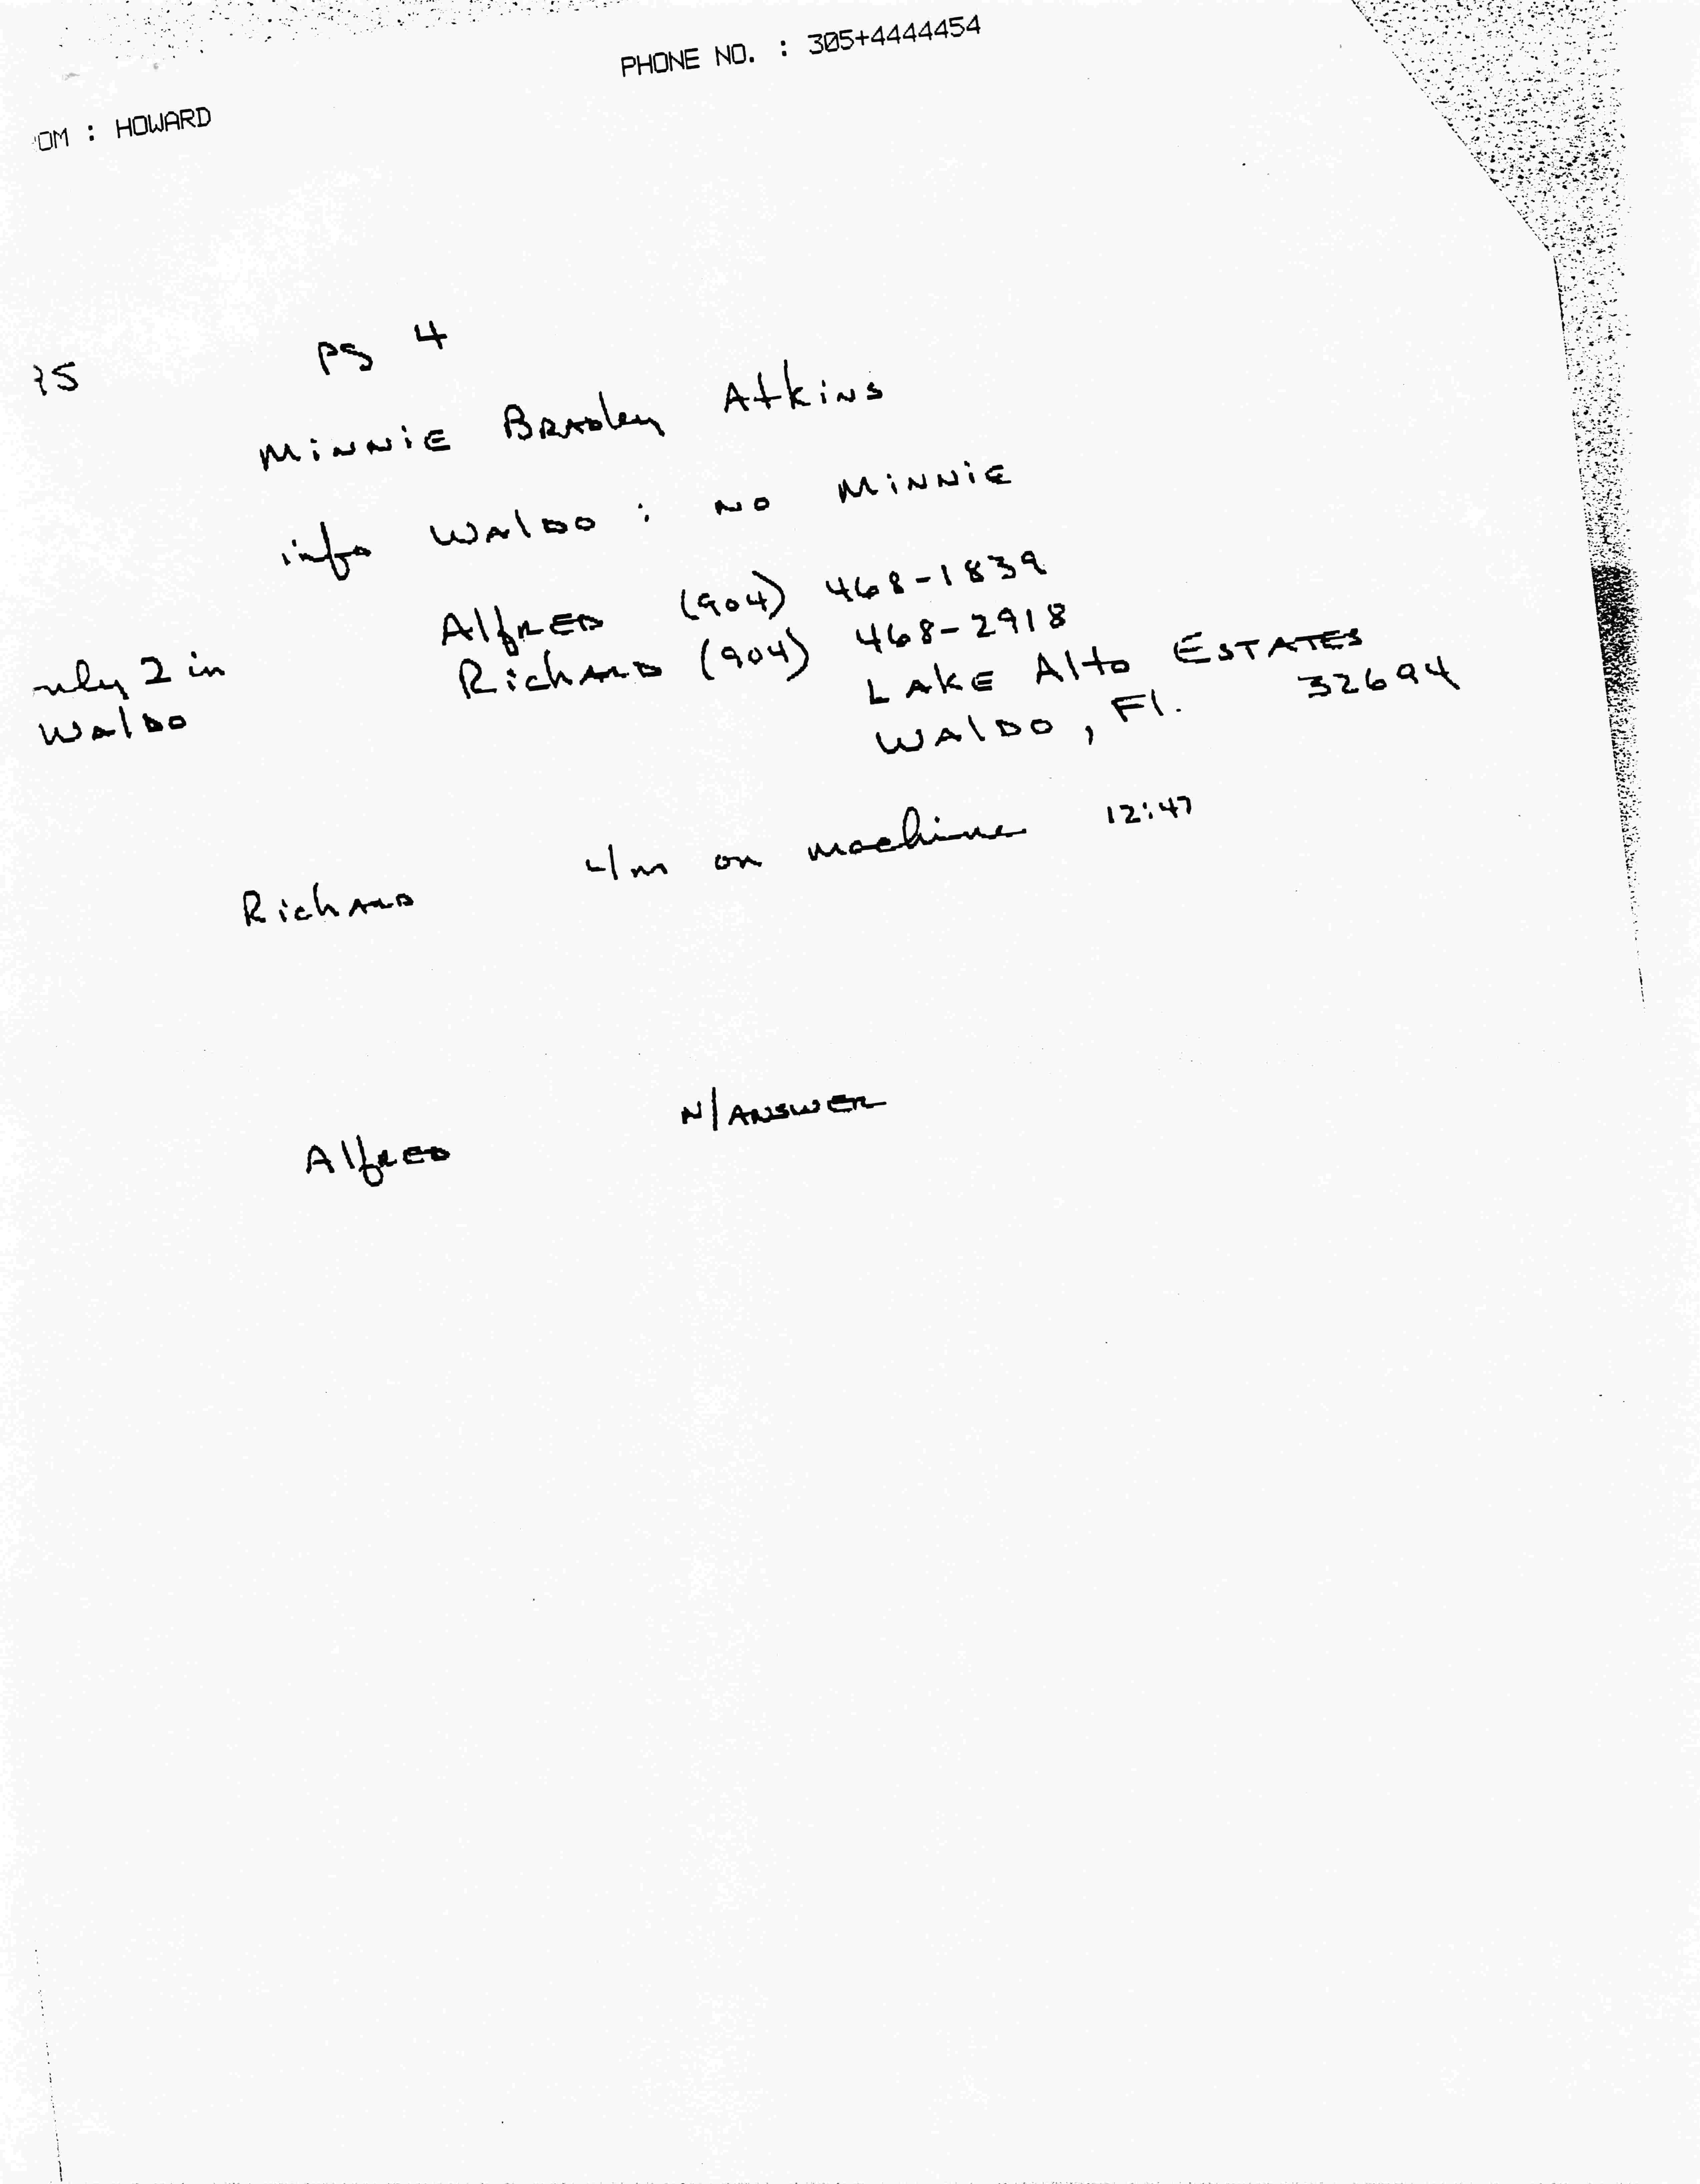 PHONE NO. : 305+4444454
OM : HOWARD
pg 4
Minnie Bradley Atkins
info Waldo : no Minnie
Alfred (904) 468-1839
Richard (904) 468-2918
Lake Alto Estates
Waldo, Fl. 32694
nly 2 in
Waldo
Richard L/m on machine 12:47
Alfred N/Answer